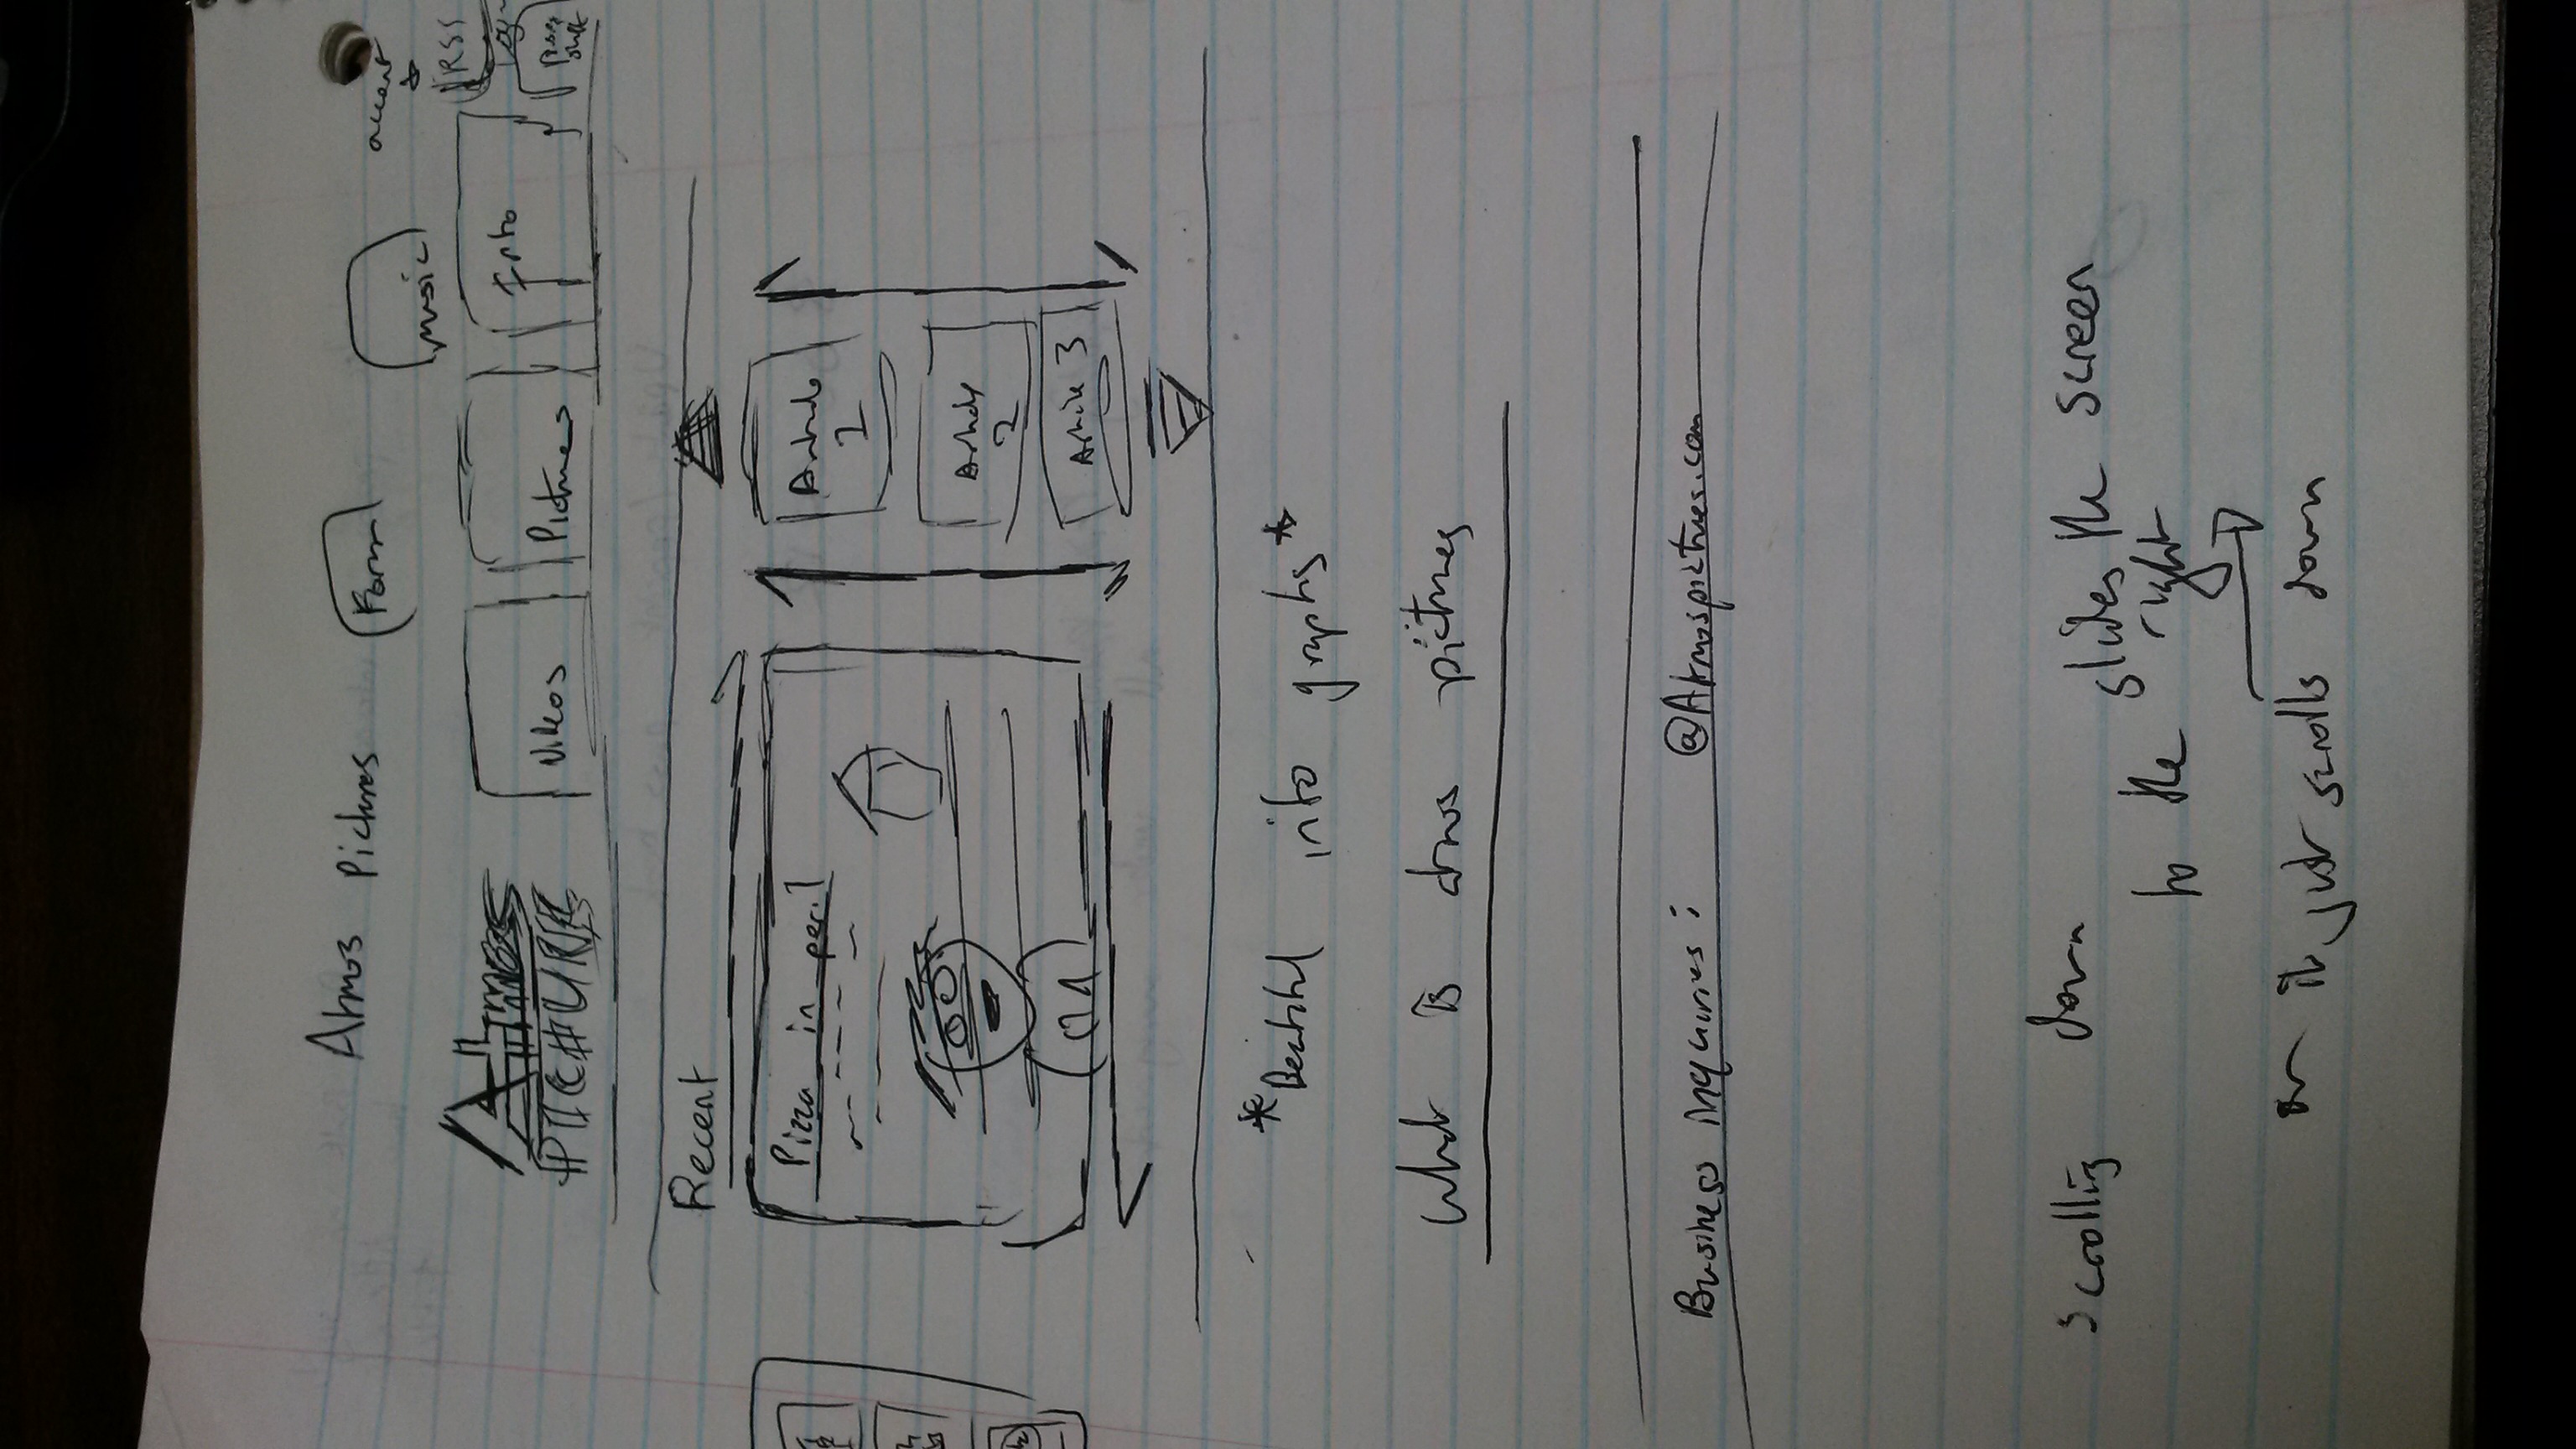 Atmos Pictures
Form
music
account
RSS
Atmos
PICTURES
Videos
Pictures
Info
Recent
Pizza in peril
Article
1
Article
2
Article 3
*Beautiful info graphs*
What is atmos pictures
Business inquiries: @Atmospictures.com
Scrolling down slides the screen
to the right
or it just scrolls down